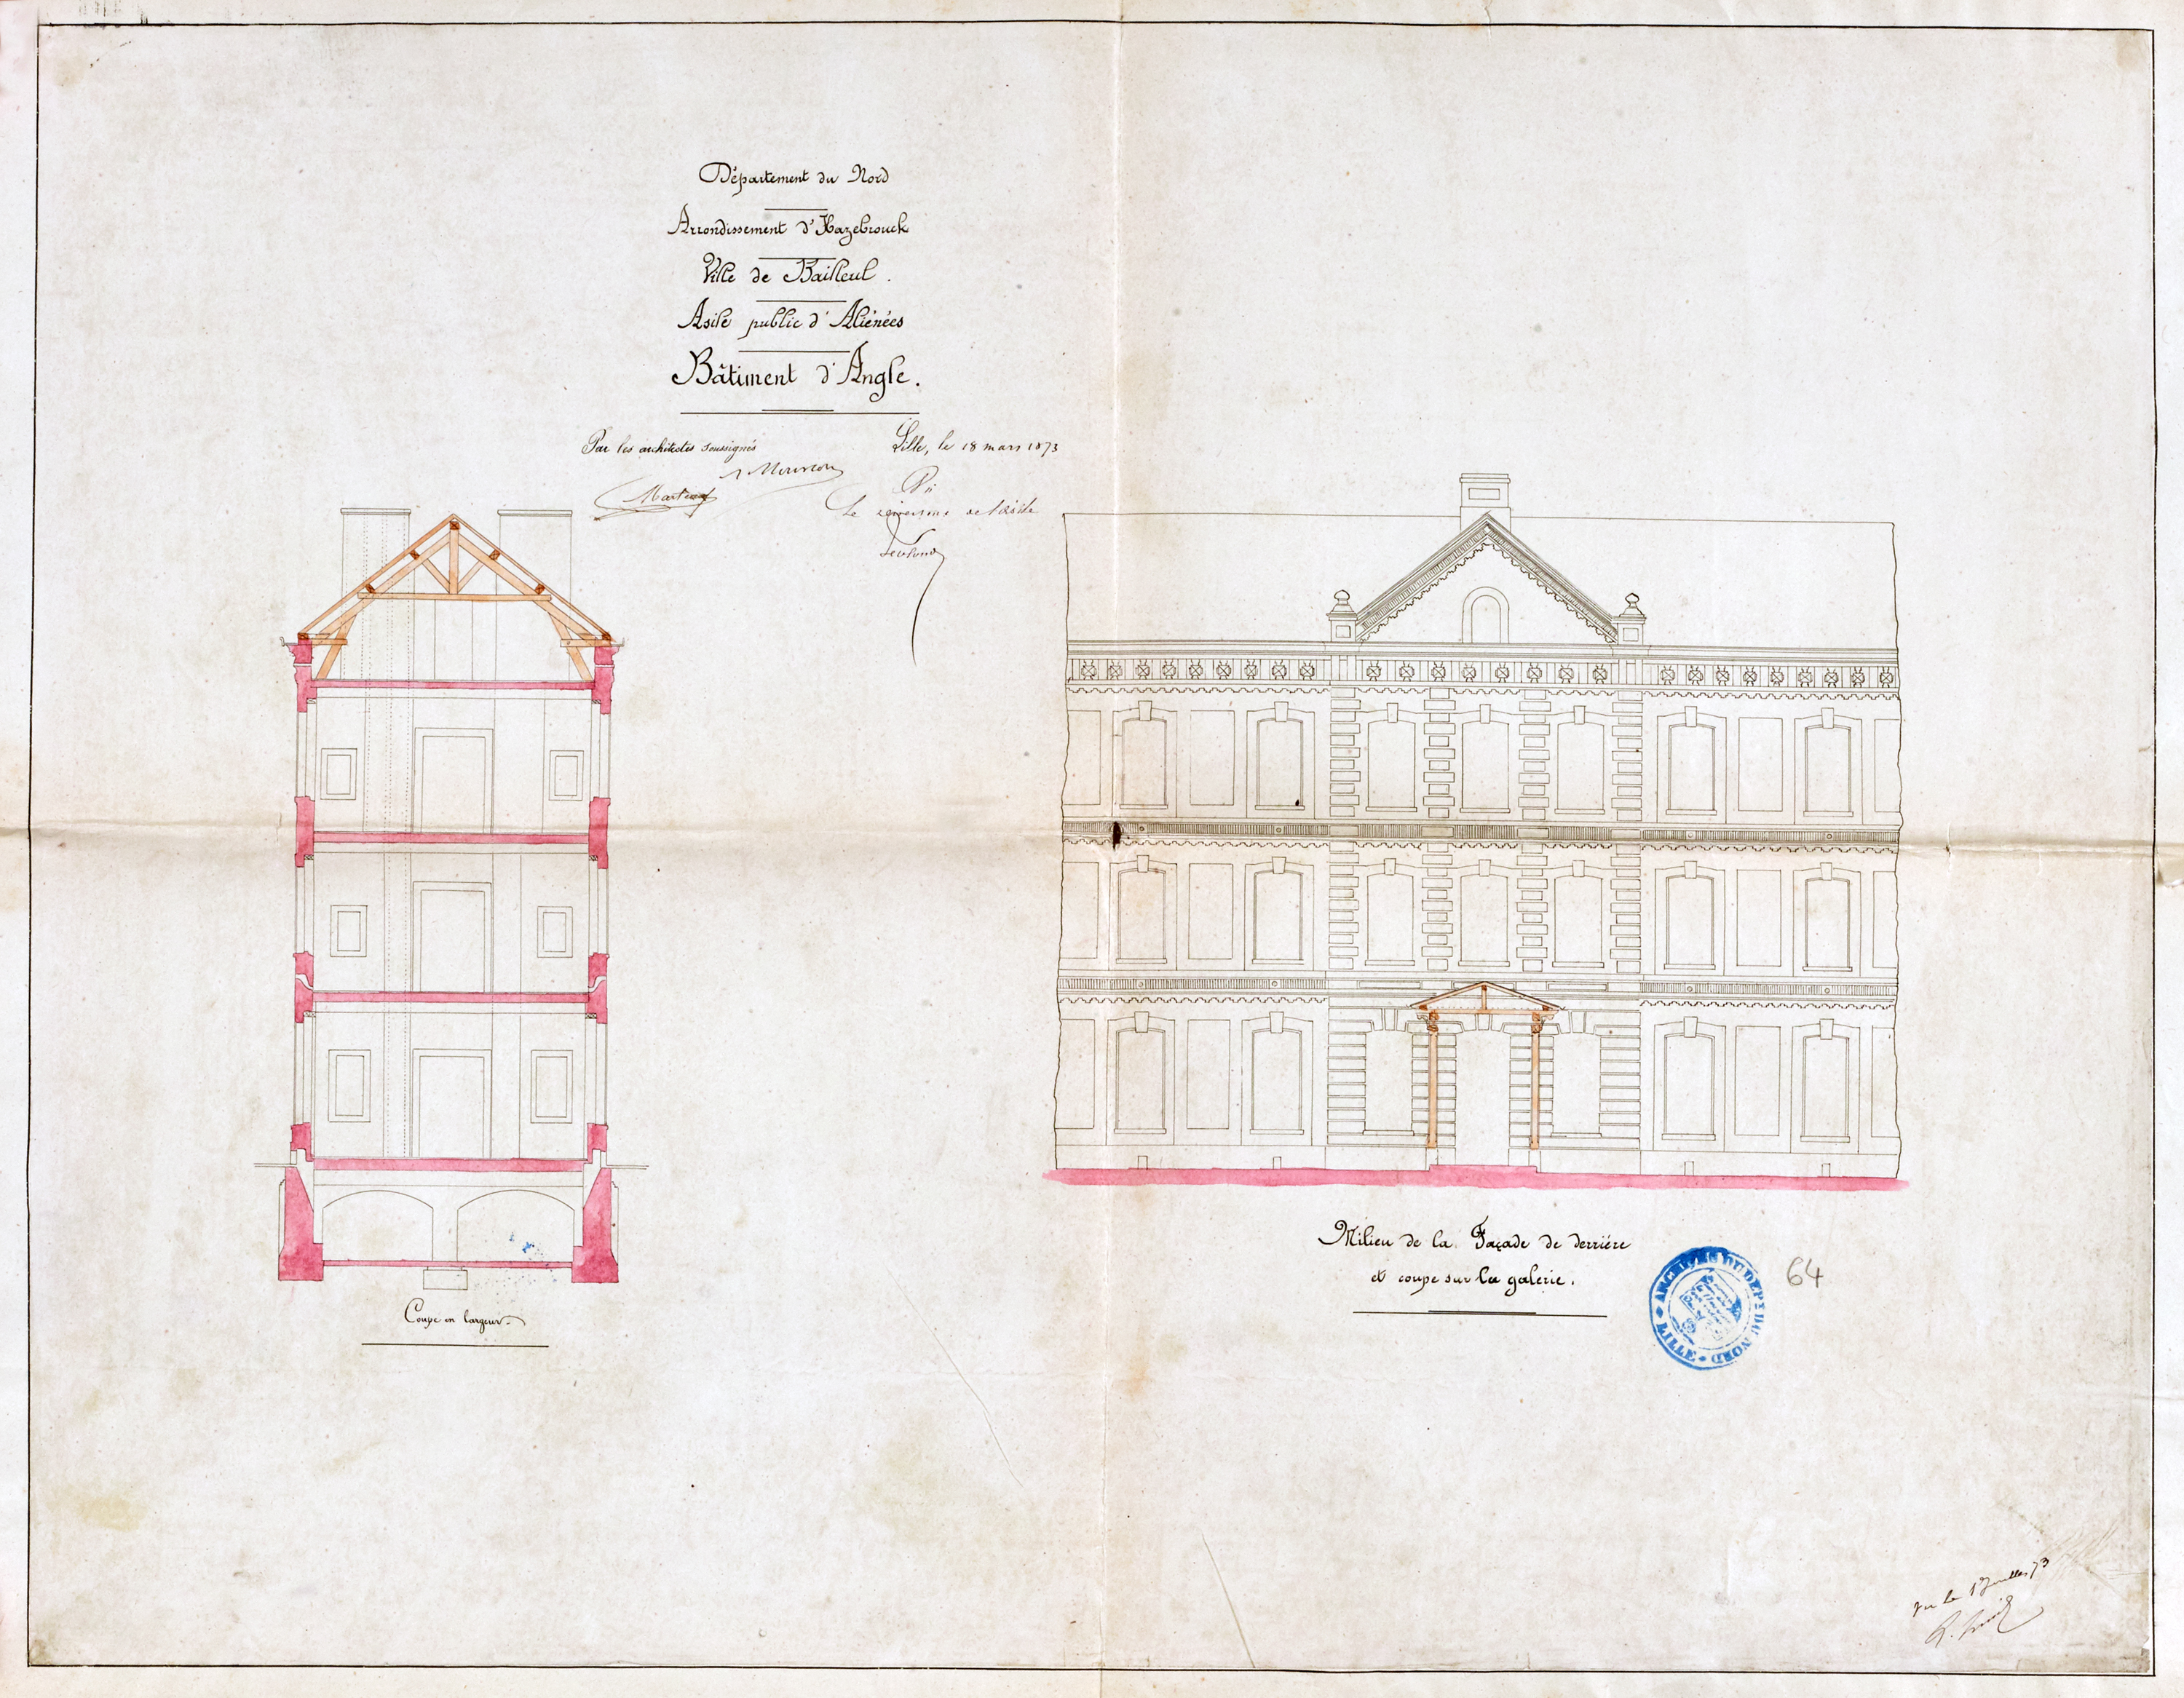 Département du Nord
Arrondissement d'Hazebrouck
Ville de Bailleul.
Asile public d'Aliénées
Bâtiment d'Angle.
Par les architectes soussignés
Lille, le 18 mars 1873
Mourcou
Marteau
Vu
Le de l'asile
Coupe en largeur
Milieu de la Façade de derrière
et coupe sur la galerie.
ARCHIVES DU DEPT DU NORD
LILLE
64
Vu le 1er Juillet 73